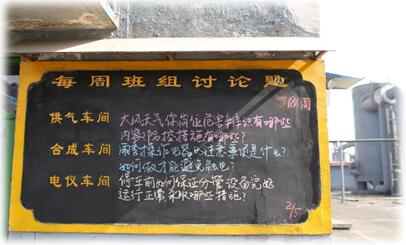 每周班组讨论题
第18周
供气车间 大风天气你岗位危害辨识有哪些
内容?防控措施有哪些?
合成车间 雨季操作电器的注意事项是什么?
如何做才能避免触电?
电仪车间 停车前如何保证分管设备完好
运行正常采取哪些措施?
2/5